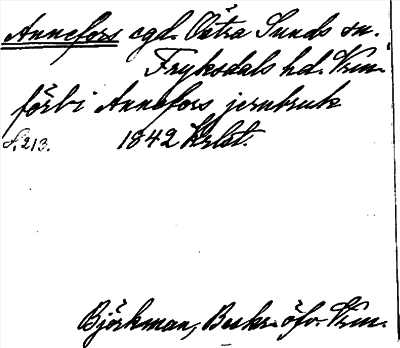 Annefors egd. Östra Sunds sn.
Fryksdals hd. Vrm.
förbi Annefors jernbruk
s. 213. 1842 Krlst.
Björkman, Beskr. öfv. Vrm.